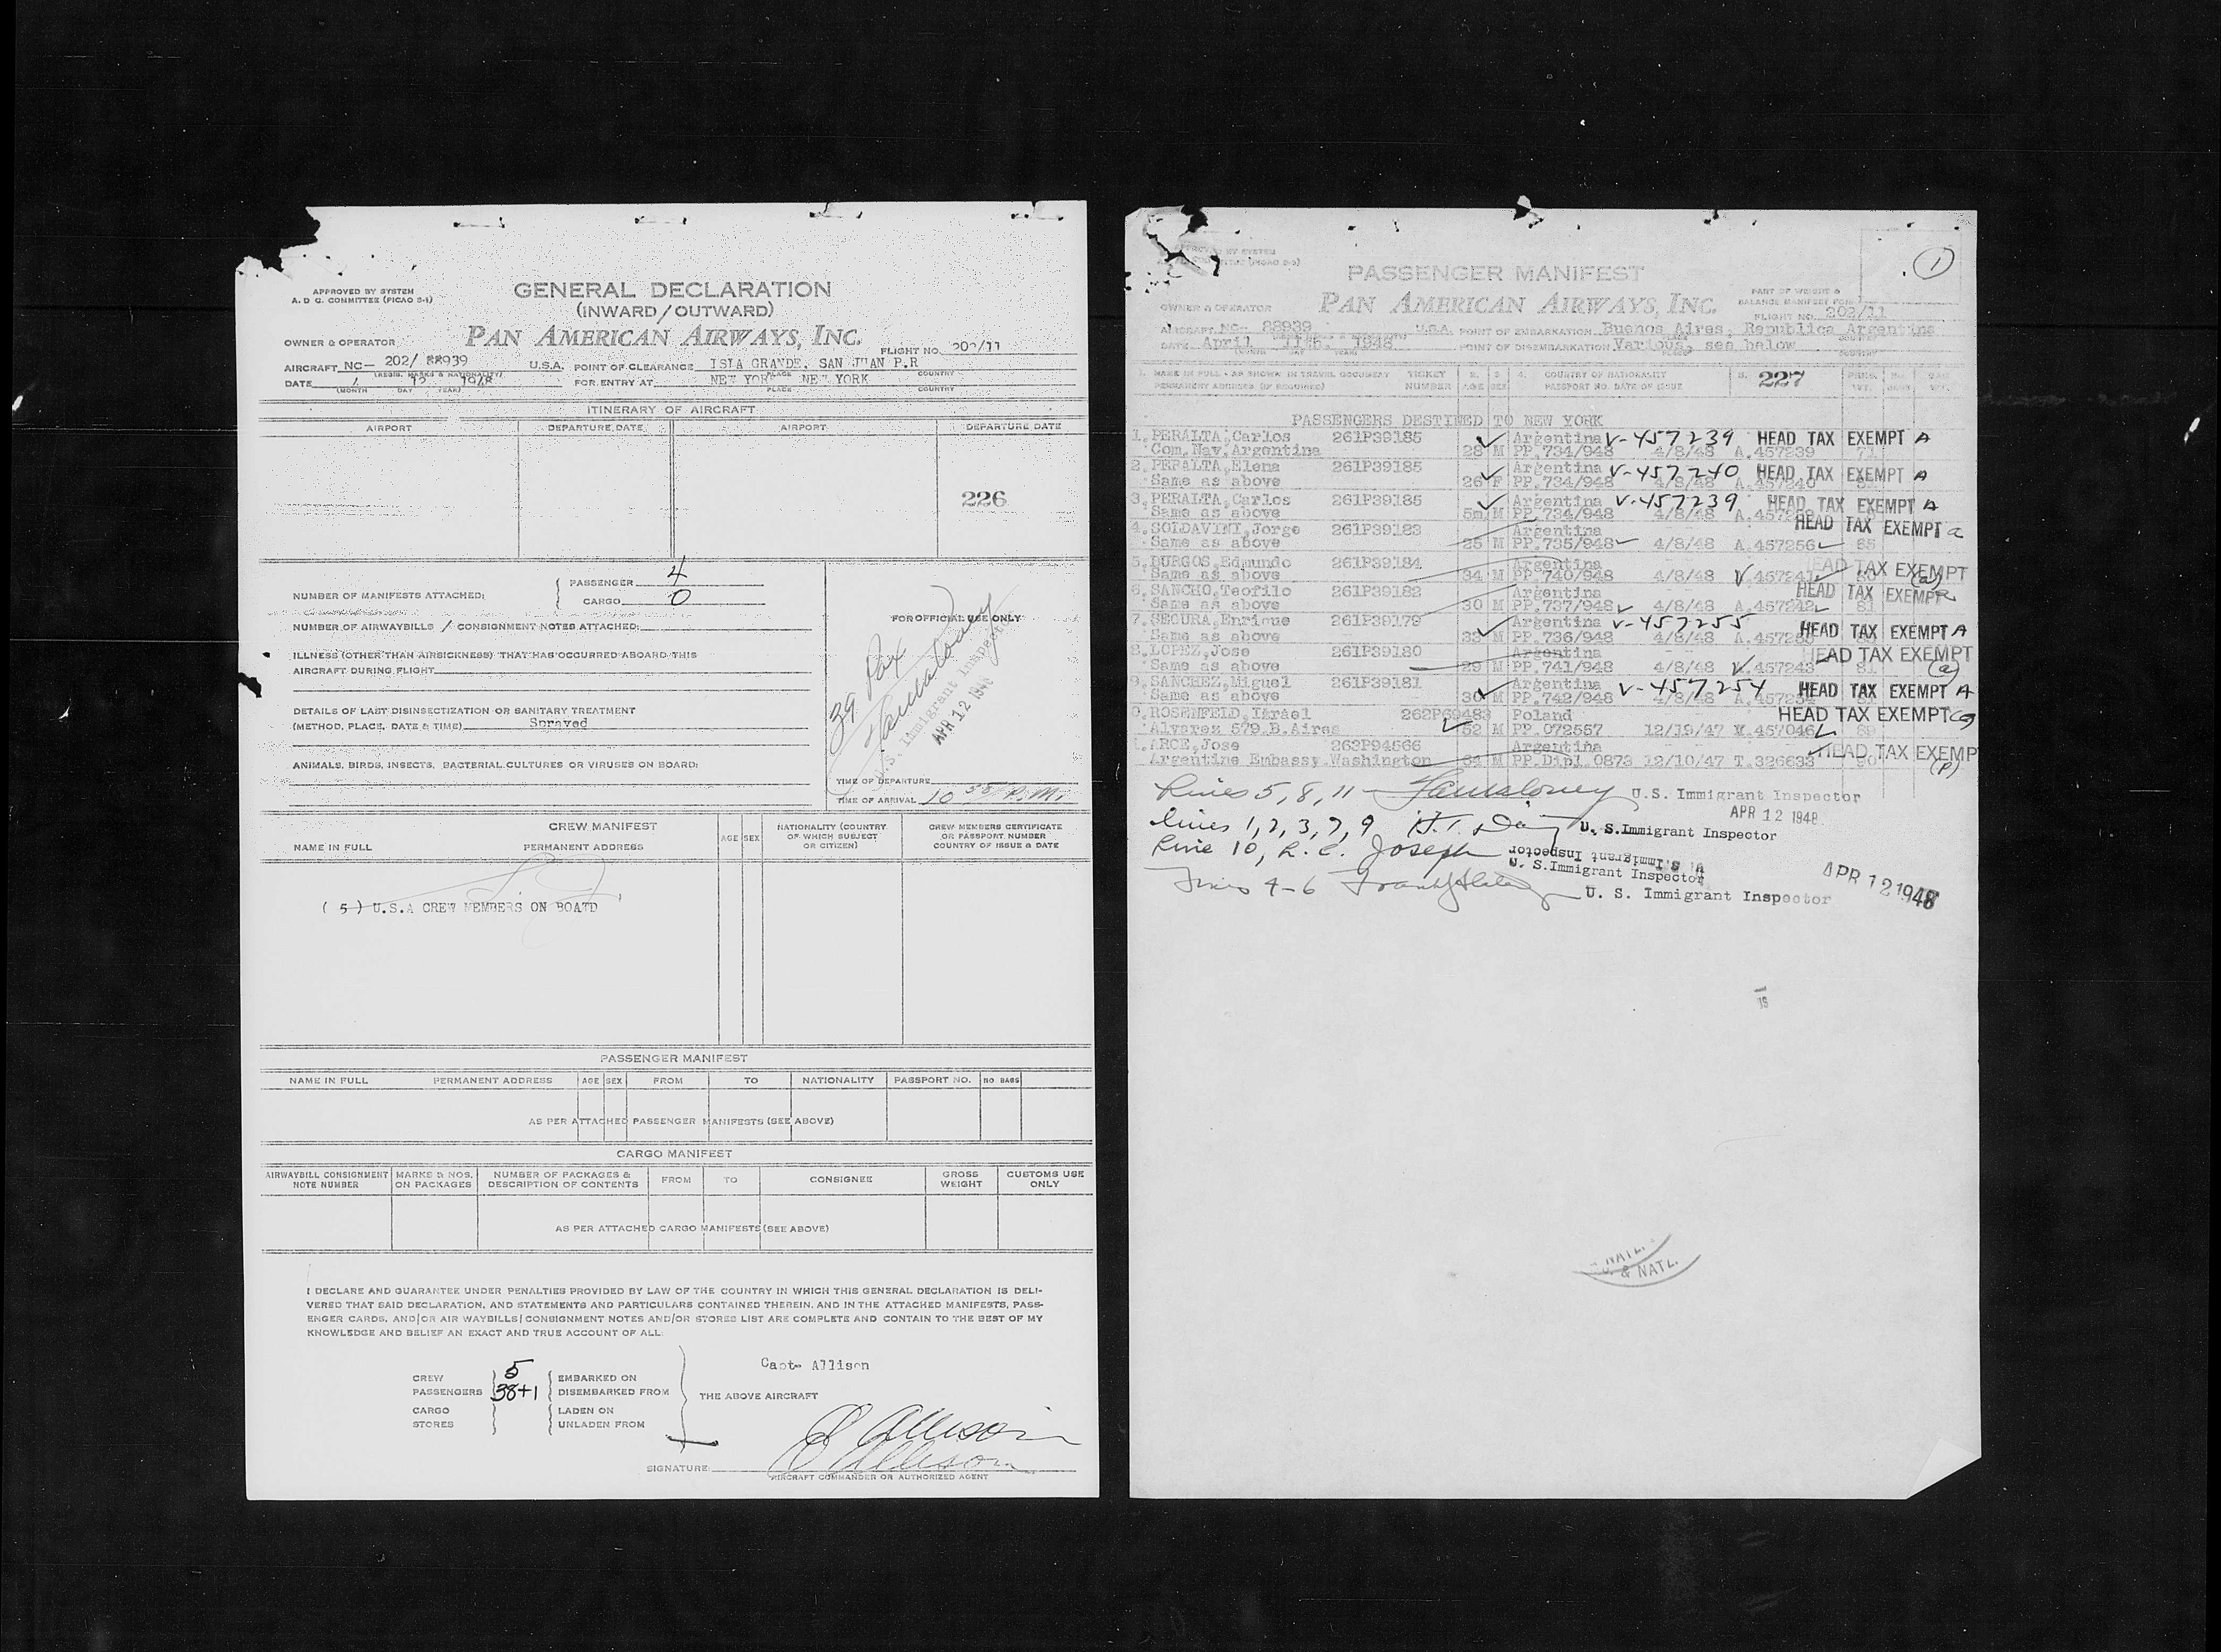 APPROVED BY SYSTEM
A. D G. COMMITTEE (PICAO S-1)
GENERAL DECLARATION
(INWARD/OUTWARD)
OWNER & OPERATOR
PAN AMERICAN AIRWAYS, INC.
FLIGHT NO. 202/11
AIRCRAFT NC- 202/ 88939 U.S.A. POINT OF CLEARANCE ISLA GRANDE, SAN JUAN P.R
(REGIS. MARKS & NATIONALITY) PLACE COUNTRY
DATE 4 12 1948 FOR ENTRY AT NEW YORK NEW YORK
(MONTH DAY YEAR) PLACE COUNTRY
ITINERARY OF AIRCRAFT
AIRPORT DEPARTURE DATE AIRPORT DEPARTURE DATE
226
NUMBER OF MANIFESTS ATTACHED: { PASSENGER 4
CARGO 0
NUMBER OF AIRWAYBILLS / CONSIGNMENT NOTES ATTACHED:
ILLNESS (OTHER THAN AIRSICKNESS) THAT HAS OCCURRED ABOARD THIS
AIRCRAFT DURING FLIGHT
DETAILS OF LAST DISINSECTIZATION OR SANITARY TREATMENT
(METHOD, PLACE, DATE & TIME) Sprayed
ANIMALS, BIRDS, INSECTS, BACTERIAL CULTURES OR VIRUSES ON BOARD:
FOR OFFICIAL USE ONLY
39 Pax
U.S. Immigrant Inspector
APR 12 1948
TIME OF DEPARTURE
TIME OF ARRIVAL 10 38 P.M.
CREW MANIFEST
NAME IN FULL PERMANENT ADDRESS
AGE SEX
NATIONALITY (COUNTRY
OF WHICH SUBJECT
OR CITIZEN)
CREW MEMBERS CERTIFICATE
OR PASSPORT NUMBER
COUNTRY OF ISSUE & DATE
( 5 ) U.S.A CREW MEMBERS ON BOATD
PASSENGER MANIFEST
NAME IN FULL PERMANENT ADDRESS AGE SEX FROM TO NATIONALITY PASSPORT NO. NO BAGS
AS PER ATTACHED PASSENGER MANIFESTS (SEE ABOVE)
CARGO MANIFEST
AIRWAYBILL CONSIGNMENT
NOTE NUMBER
MARKS & NOS.
ON PACKAGES
NUMBER OF PACKAGES &
DESCRIPTION OF CONTENTS
FROM TO CONSIGNEE
GROSS
WEIGHT
CUSTOMS USE
ONLY
AS PER ATTACHED CARGO MANIFESTS (SEE ABOVE)
I DECLARE AND GUARANTEE UNDER PENALTIES PROVIDED BY LAW OF THE COUNTRY IN WHICH THIS GENERAL DECLARATION IS DELI-
VERED THAT SAID DECLARATION, AND STATEMENTS AND PARTICULARS CONTAINED THEREIN, AND IN THE ATTACHED MANIFESTS, PASS-
ENGER CARDS, AND/OR AIR WAYBILLS/CONSIGNMENT NOTES AND/OR STORES LIST ARE COMPLETE AND CONTAIN TO THE BEST OF MY
KNOWLEDGE AND BELIEF AN EXACT AND TRUE ACCOUNT OF ALL:
Capt- Allison
CREW 5 EMBARKED ON
PASSENGERS 38+1 DISEMBARKED FROM THE ABOVE AIRCRAFT
CARGO LADEN ON
STORES UNLADEN FROM
Allison
SIGNATURE: Allison
AIRCRAFT COMMANDER OR AUTHORIZED AGENT
1
PASSENGER MANIFEST
PART OF WEIGHT &
BALANCE MANIFEST FORM
OWNER & OPERATOR PAN AMERICAN AIRWAYS, INC. FLIGHT NO. 202/11
AIRCRAFT NC- 88939 U.S.A. POINT OF EMBARKATION Buenos Aires, Republica Argentina
DATE April 11th. 1948 POINT OF DISEMBARKATION Various, see below
1. NAME IN FULL - AS SHOWN IN TRAVEL DOCUMENT TICKET 2. 3. 4. COUNTRY OF NATIONALITY 5. 227
PERMANENT ADDRESS (IF REQUIRED) NUMBER AGE SEX PASSPORT NO. DATE OF ISSUE
PASSENGERS DESTINED TO NEW YORK
1. PERALTA, Carlos 261P39185 Argentina V-457239 HEAD TAX EXEMPT A
Com.Nav.Argentina 28 M PP.734/948 4/8/48 A.457239 71
2. PERALTA, Elena 261P39185 Argentina V-457240 HEAD TAX EXEMPT A
Same as above 26 F PP.734/948 4/8/48 A.457240
3. PERALTA, Carlos 261P39185 Argentina V-457239 HEAD TAX EXEMPT A
Same as above 5m M PP.734/948 4/8/48
4. SOLDAVINI, Jorge 261P39183 Argentina HEAD TAX EXEMPT a
Same as above 25 M PP.735/948 4/8/48 A.457256 65
5. BURGOS, Edmundo 261P39184 Argentina HEAD TAX EXEMPT
Same as above 34 M PP.740/948 4/8/48 V.457241 (a)
6. SANCHO, Teofilo 261P39182 Argentina HEAD TAX EXEMPT
Same as above 30 M PP.737/948 4/8/48 A.457242 81
7. SEGURA, Enrique 261P39179 Argentina V-457255 HEAD TAX EXEMPT A
Same as above 33 M PP.736/948 4/8/48
8. LOPEZ, Jose 261P39180 Argentina HEAD TAX EXEMPT
Same as above 29 M PP.741/948 4/8/48 V.457243 81 (a)
9. SANCHEZ, Miguel 261P39181 Argentina V-457254 HEAD TAX EXEMPT A
Same as above 30 M PP.742/948 4/8/48 A.457254
0. ROSENFELD, Israel 262P69483 Poland HEAD TAX EXEMPT (a)
Alvarez 579 B.Aires 52 M PP.072557 12/19/47 V.457046
1. ARCE, Jose 262P94566 Argentina HEAD TAX EXEMP
Argentine Embassy Washington 64 M PP.Dipl.0873 12/10/47 T.326633 90 (P)
Lines 5, 8, 11 - U.S. Immigrant Inspector
APR 12 1948
Lines 1, 2, 3, 7, 9 H.T. Day U. S.Immigrant Inspector
Line 10, R. C. Joseph U. S.Immigrant Inspector
U. S.Immigrant Inspector
APR 12 1948
Lines 4-6 U. S. Immigrant Inspector
& NATL.